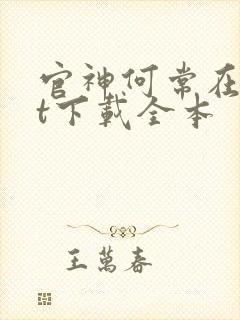 官神何常在
t下載全本
王萬春